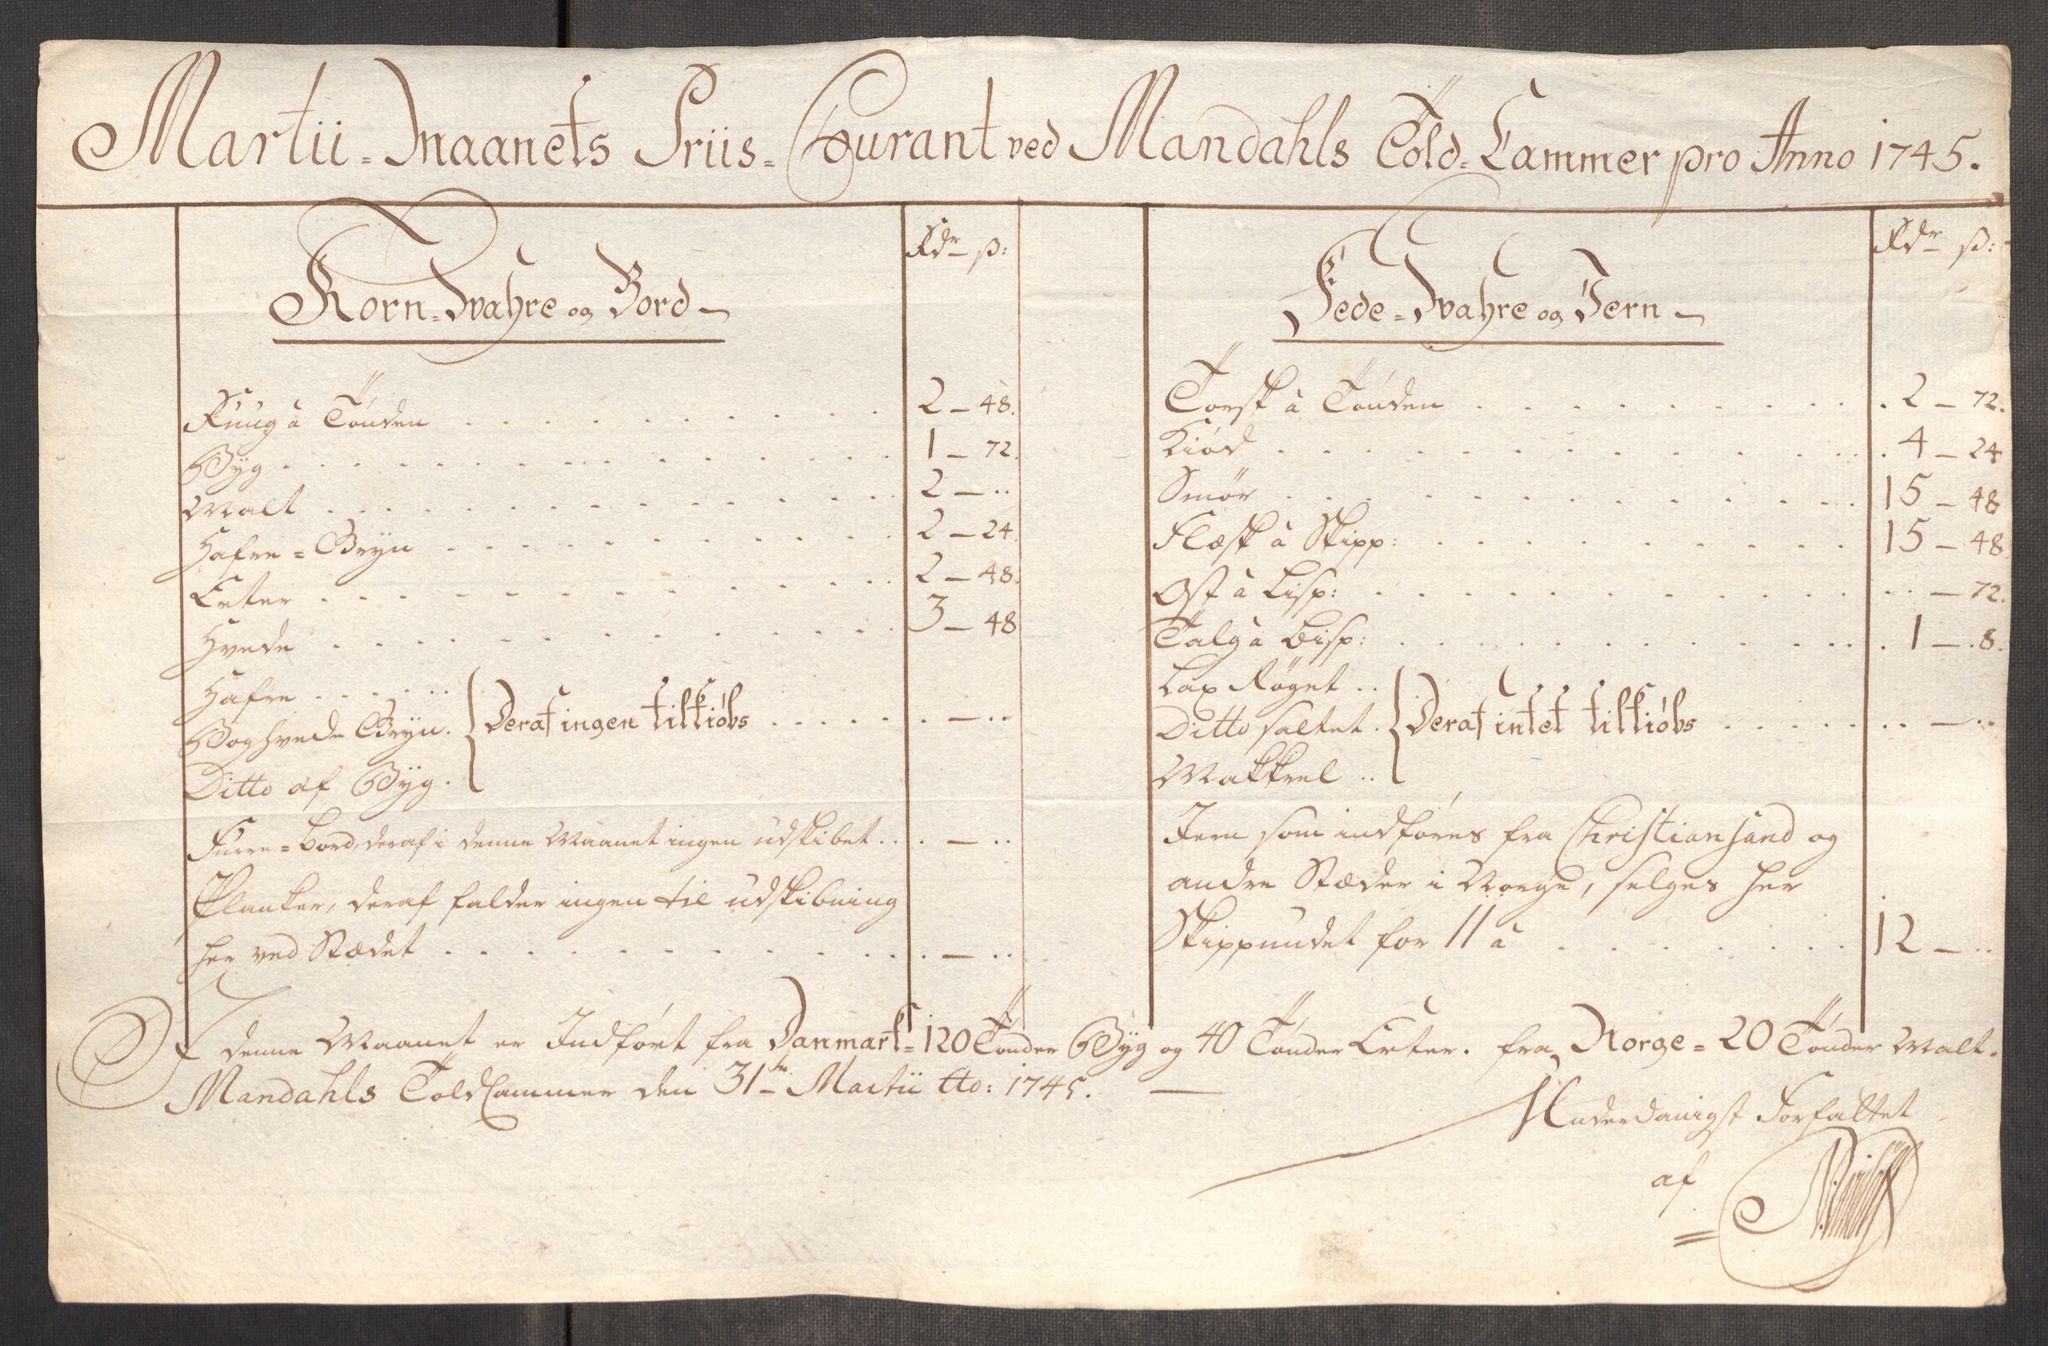 Martii-Maanets Priis-Courant ved Mandahls Told-Cammer pro Anno 1745.
Rdr ß:
Korn-Vahre og Bord
Ruug à Tønden 2 - 48.
Byg 1 - 72.
Malt 2 - ..
Hafre-Gryn 2 - 24.
Erter 2 - 48.
Hvede 3 - 48
Hafre
Boghvede Gryn. Deraf ingen tilkiøbs . - ..
Ditto af Byg.
Furre-Bord, deraf i denne Maanet ingen udskibet . - ..
Planker, deraf falder ingen til udskibning
her ved Stædet . - ..
Rdr ß:
Fede-Vahre og Jern
Torsk à Tønden 2 - 72.
Kiød 4 - 24
Smør 15 - 48
Flæsk à Skipp: 15 - 48
Ost à Lisp: - 72.
Talg à Lisp: 1 - 8.
Lax Røget
Ditto saltet. Deraf intet tilkiøbs - ..
Makkrel
Jern som indføres fra Christiansand og
andre Stæder i Norge, selges her
Skippundet for 11 à 12 - ..
I denne Maanet er Indført fra Danmark-120 Tønder Byg og 40 Tønder Erter. fra Norge-20 Tønder Malt.
Mandahls Told Cammer den 31te Martii Ao: 1745.
Underdanigst Forfattet
af